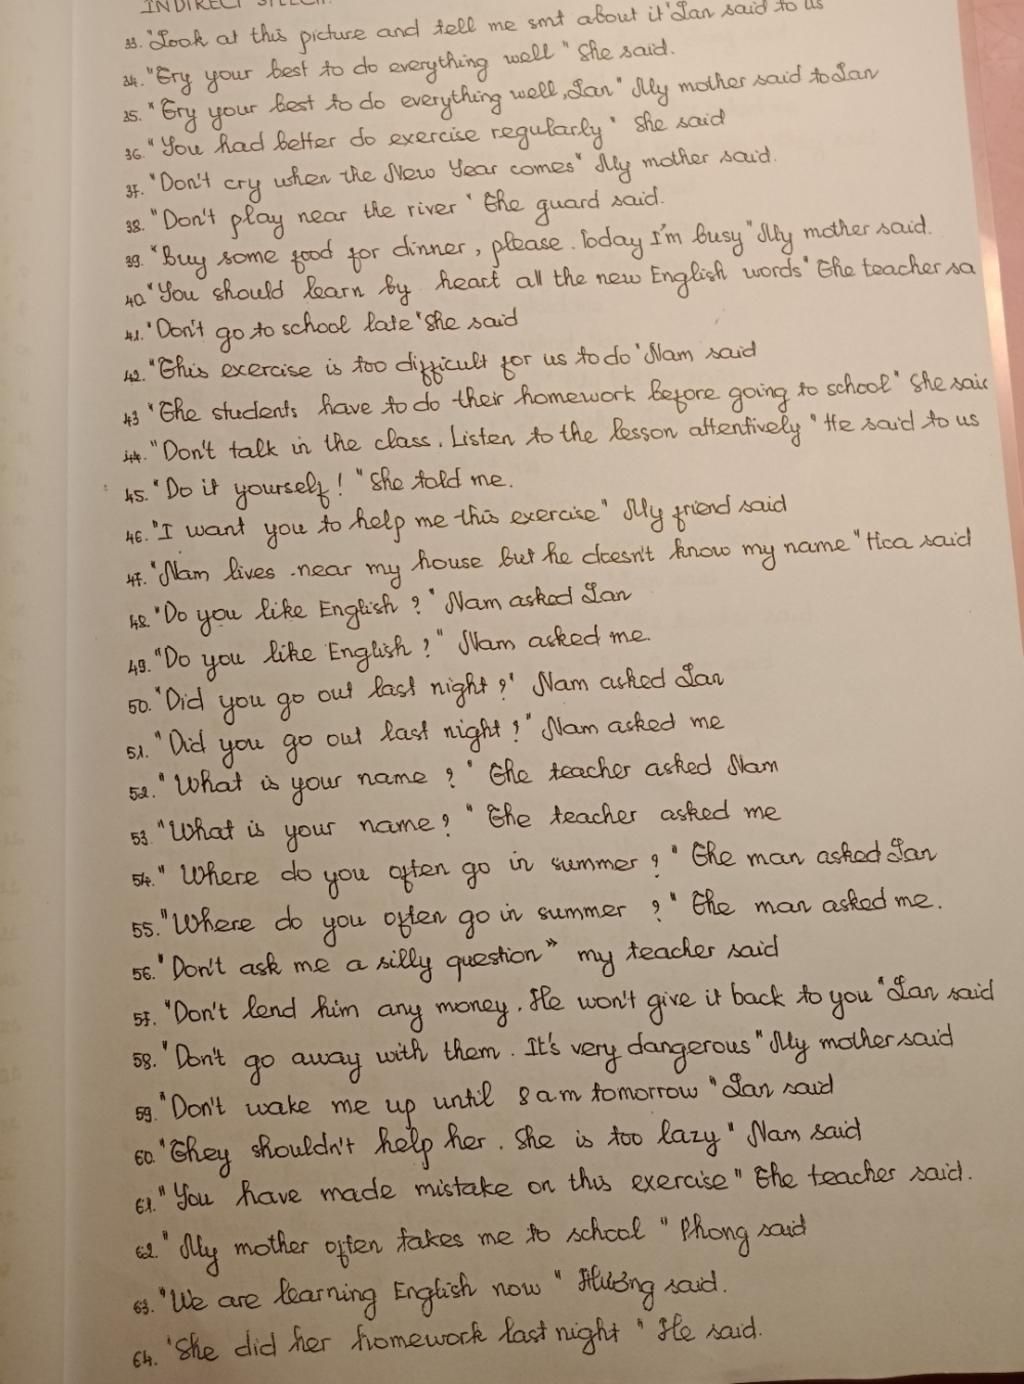 INDIRECT SPEECH
33. "Look at this picture and tell me smt about it" Lan said to us
34. "Try your best to do everything well" She said.
35. "Try your best to do everything well, Lan" My mother said to Lan
36. "You had better do exercise regularly" She said
37. "Don't cry when the New Year comes" My mother said.
38. "Don't play near the river" The guard said.
39. "Buy some food for dinner, please. Today I'm busy" My mother said.
40. "You should learn by heart all the new English words" The teacher sa
41. "Don't go to school late" She said
42. "This exercise is too difficult for us to do" Nam said
43 "The students have to do their homework before going to school" She said
44. "Don't talk in the class. Listen to the lesson attentively" He said to us
45. "Do it yourself!" She told me.
46. "I want you to help me this exercise" My friend said
47. "Nam lives near my house but he doesn't know my name" Hoa said
48. "Do you like English?" Nam asked Lan
49. "Do you like English?" Nam asked me.
50. "Did you go out last night?" Nam asked Lan
51. "Did you go out last night?" Nam asked me
52. "What is your name?" The teacher asked Nam
53. "What is your name?" The teacher asked me
54. "Where do you often go in summer?" The man asked Lan
55. "Where do you often go in summer?" The man asked me.
56. "Don't ask me a silly question" my teacher said
57. "Don't lend him any money. He won't give it back to you" Lan said
58. "Don't go away with them. It's very dangerous" My mother said
59. "Don't wake me up until 8 am tomorrow" Lan said
60. "They shouldn't help her. She is too lazy" Nam said
61. "You have made mistake on this exercise" The teacher said.
62. "My mother often takes me to school" Phong said
63. "We are learning English now" Hương said.
64. "She did her homework last night" He said.